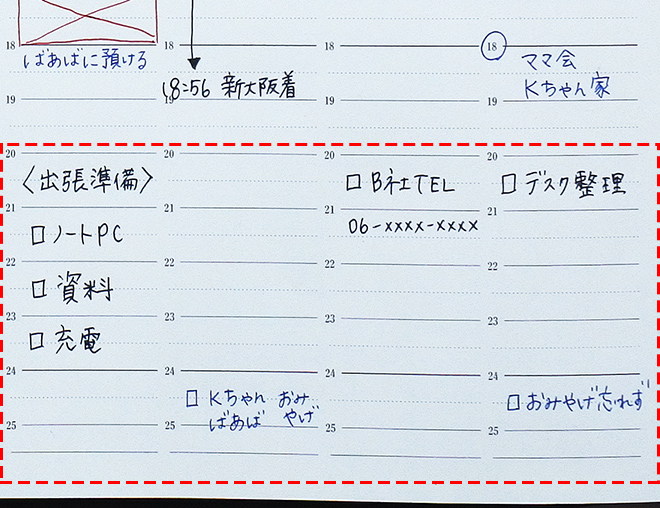 18
ばあばに預ける
19
20
〈出張準備〉
21
□ ノートPC
22
□ 資料
23
□ 充電
24
25
18
18:56 新大阪着
19
20
21
22
23
24
□ Kちゃん おみ
ばあば やげ
25
18
19
20
□ B社TEL
21
06-xxxx-xxxx
22
23
24
25
18
ママ会
Kちゃん家
19
20
□ デスク整理
21
22
23
24
□ おみやげ忘れず!
25